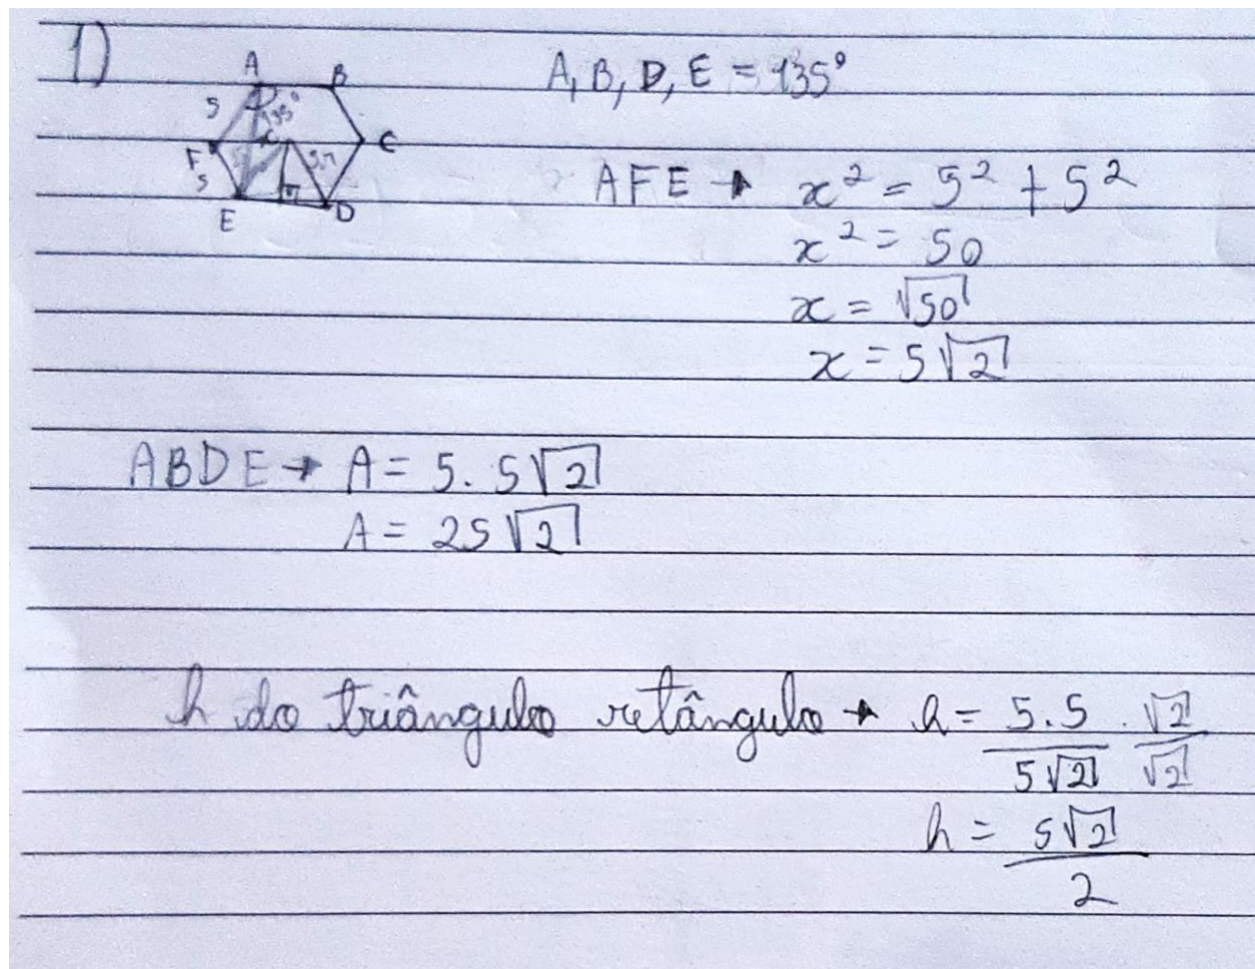 1)
A, B, D, E = 135°
A B
5 135°
F x 5√2 C
5
E D
AFE → x² = 5² + 5²
x² = 50
x = √50
x = 5√2
ABDE → A = 5 . 5√2
A = 25√2
h do triângulo retângulo → h = 5.5/5√2 . √2/√2
h = 5√2/2